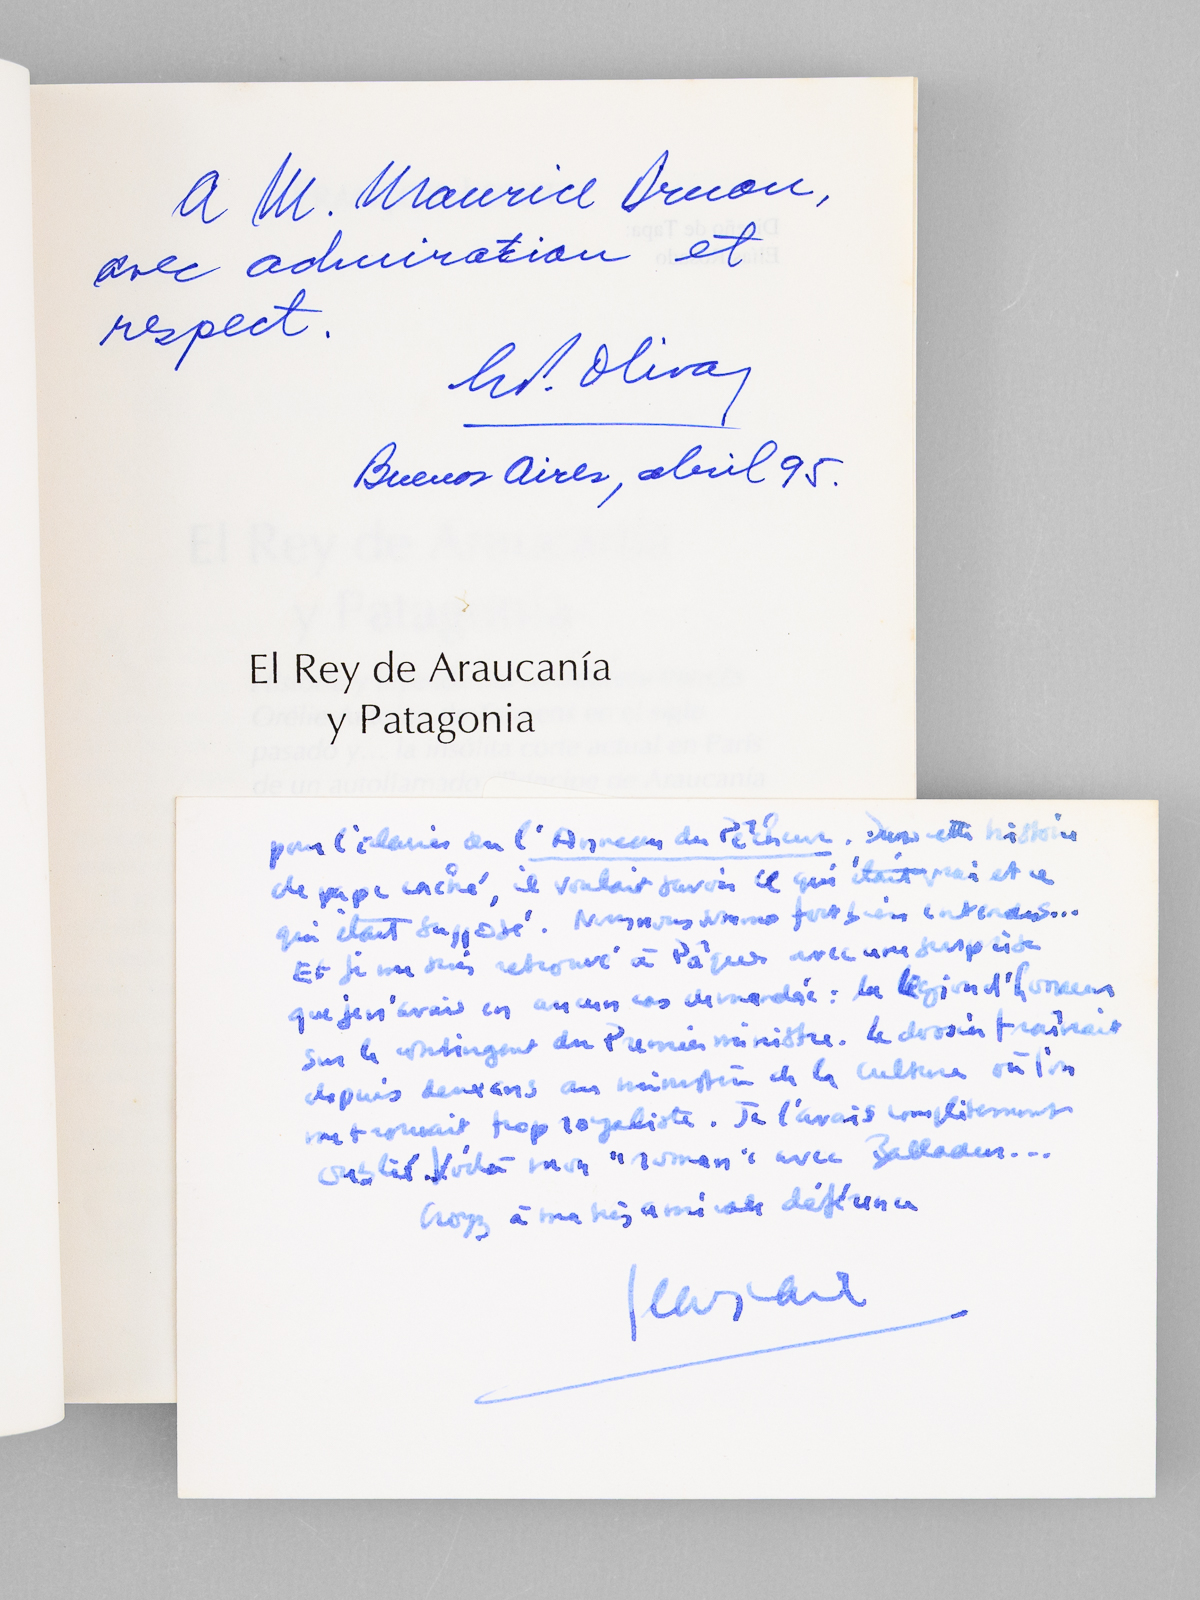 A M. Maurice Druon,
avec admiration et
respect.
Olivay
Buenos Aires, abril 95.
El Rey de Araucanía
y Patagonia
pour l'éclairer sur l'Anneau du Pêcheur. Dans cette histoire
de pape caché, il voulait savoir ce qui était vrai et ce
qui était supposé. Nous nous sommes fort bien entendus...
Et je me suis retrouvé à Pâques avec une surprise
que je n'avais en aucun cas demandée : la Légion d'honneur
sur le contingent du Premier ministre. Le dossier traînait
depuis deux ans au ministère de la Culture où l'on
me trouvait trop royaliste. Je l'avais complètement
oublié. Voilà mon "roman" avec Balladur...
Croyez à ma très amicale déférence